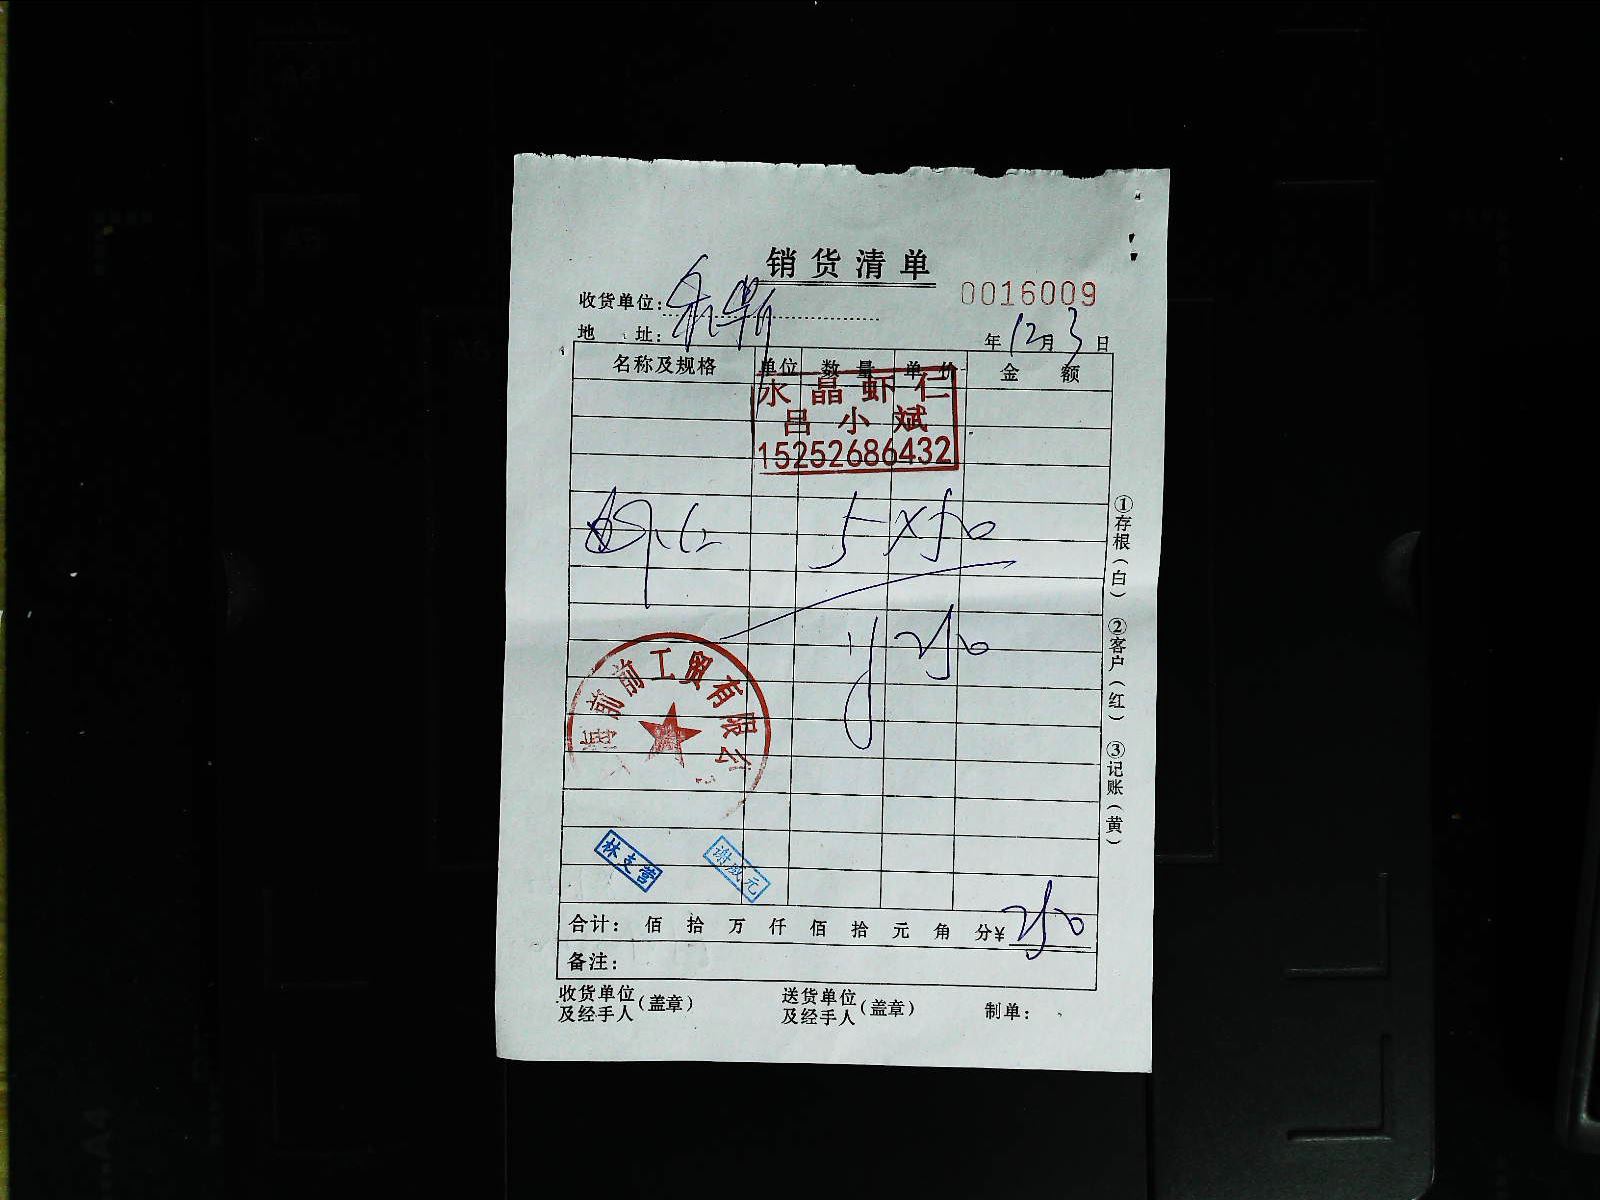 销货清单
0016009
收货单位:
地 址:
年12月3日
名称及规格 单位 数量 单价 金额
水晶虾仁
吕小斌
15252686432
虾仁 5×50
250
前前工贸有限公
林支营
谢成元
合计: 佰 拾 万 仟 佰 拾 元 角 分¥ 250
备注:
收货单位及经手人(盖章)
送货单位及经手人(盖章)
制单:
①存根(白) ②客户(红) ③记账(黄)
A4